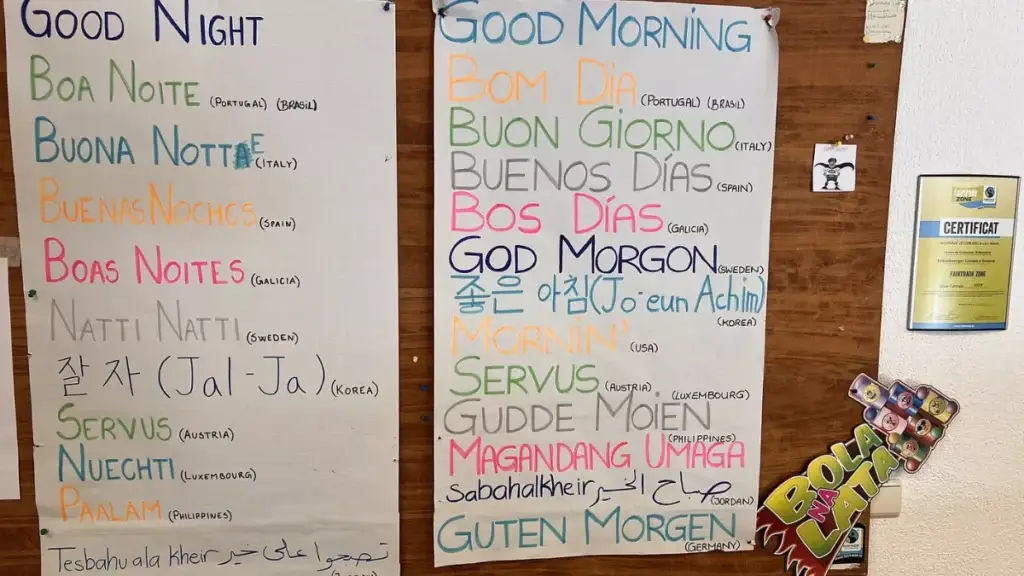 GOOD NIGHT
BOA NOITE (PORTUGAL) (BRASIL)
BUONA NOTTE (ITALY)
BUENAS NOCHES (SPAIN)
BOAS NOITES (GALICIA)
NATTI NATTI (SWEDEN)
잘 자 (Jal-Ja) (KOREA)
SERVUS (AUSTRIA)
NUECHTI (LUXEMBOURG)
PAALAM (PHILIPPINES)
Tesbahu ala kheir تصبحوا على خير
GOOD MORNING
BOM DIA (PORTUGAL) (BRASIL)
BUON GIORNO (ITALY)
BUENOS DÍAS (SPAIN)
BOS DÍAS (GALICIA)
GOD MORGON (SWEDEN)
좋은 아침 (Jo-eun Achim)
(KOREA)
MORNIN' (USA)
SERVUS (AUSTRIA)
GUDDE MOIEN (LUXEMBOURG)
MAGANDANG UMAGA (PHILIPPINES)
sabahalkheir صباح الخير (JORDAN)
GUTEN MORGEN
(GERMANY)
CERTIFICAT
FAIRTRADE ZONE
BOLA
NA
LATA